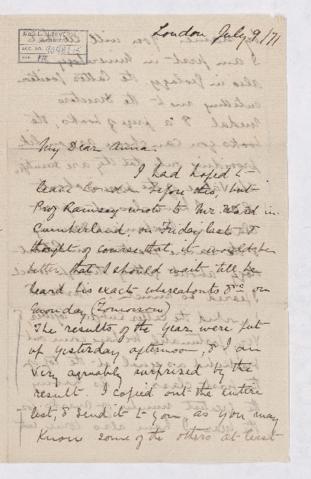 London July 9/71
My Dear Anna.
I had hoped to
leave London before this, but
Prof Ramsay wrote to Mr. Ward in
Cumberland, on Friday last &
thought of course that it would be
better that I should wait till he
heard his exact whereabouts &c on
Monday (Tomorrow)
The results of the year were put
up yesterday afternoon, & I am
very agreeably surprised by the
result. I copied out the entire
list, & send it to you, as you may
know some of the others at least